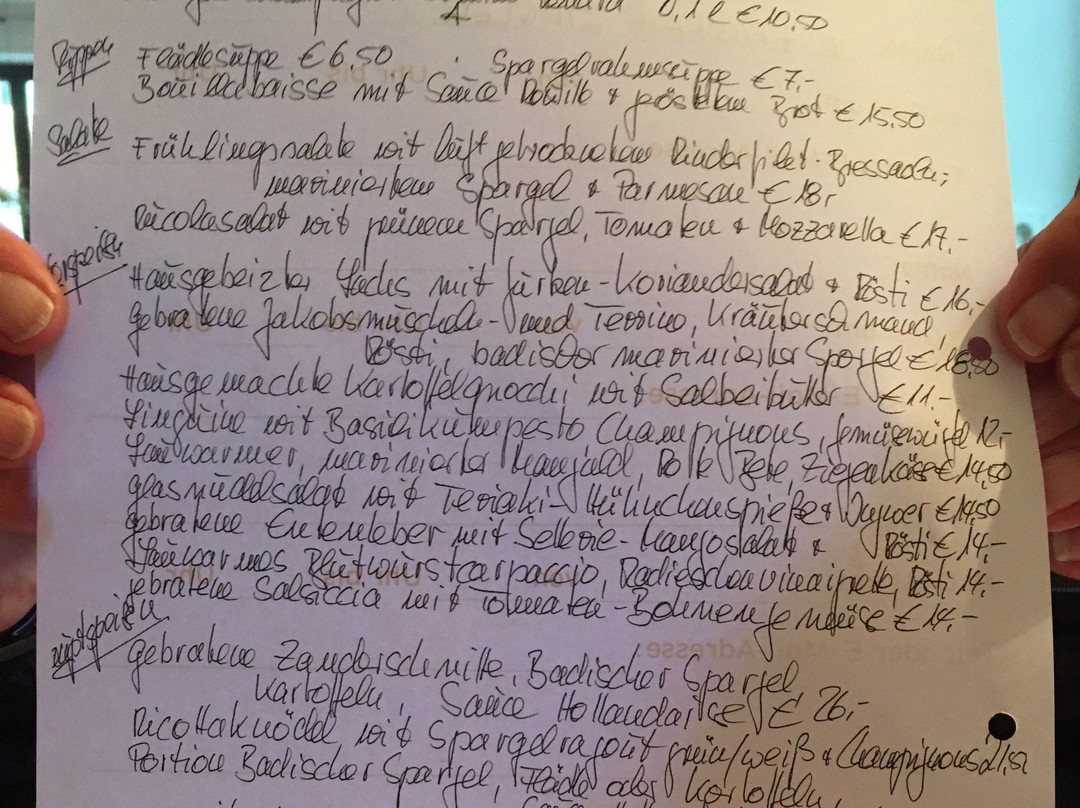 0,1 l € 10,50
Suppen Flädlesuppe € 6,50 Spargelrahmsuppe € 7,-
Bouillabaisse mit Sauce Rouille + geröstetem Brot € 15,50
Salate Frühlingssalate mit luftgetrocknetem Rinderfilet-Bressaola,
mariniertem Spargel & Parmesan € 18,-
Rucolasalat mit grünem Spargel, Tomaten + Mozzarella € 17,-
Hausgebeizter Lachs mit Gurken-Koriandersalat + Rösti € 16,-
gebratene Jakobsmuscheln- und Terrine, Kräuterschmand,
Rösti, badischer marinierter Spargel € 18,50
Hausgemachte Kartoffelgnocchi mit Salbeibutter € 11.-
Linguine mit Basilikumpesto Champignons, Gemüsewürfel 12,-
Lauwarmer, marinierter Mangold, Rote Bete, Ziegenkäse € 14,50
Glasnudelsalat mit Teriaki-Hühnchenspieße + Ingwer € 14,50
gebratene Entenleber mit Sellerie-Mangosalat & Rösti € 14.-
Lauwarmes Blutwurstcarpaccio, Radieschenvinaigrette, Rösti 14.-
gebratene Salsiccia mit Tomaten-Bohnengemüse € 14,-
Hauptspeisen gebratene Zanderschnitte, Badischer Spargel
Kartoffeln, Sauce Hollandaise € 26,-
Ricottaknödel mit Spargelragout grün/weiß + Champignons 21,50
Portion Badischer Spargel, Flädle oder Kartoffeln,